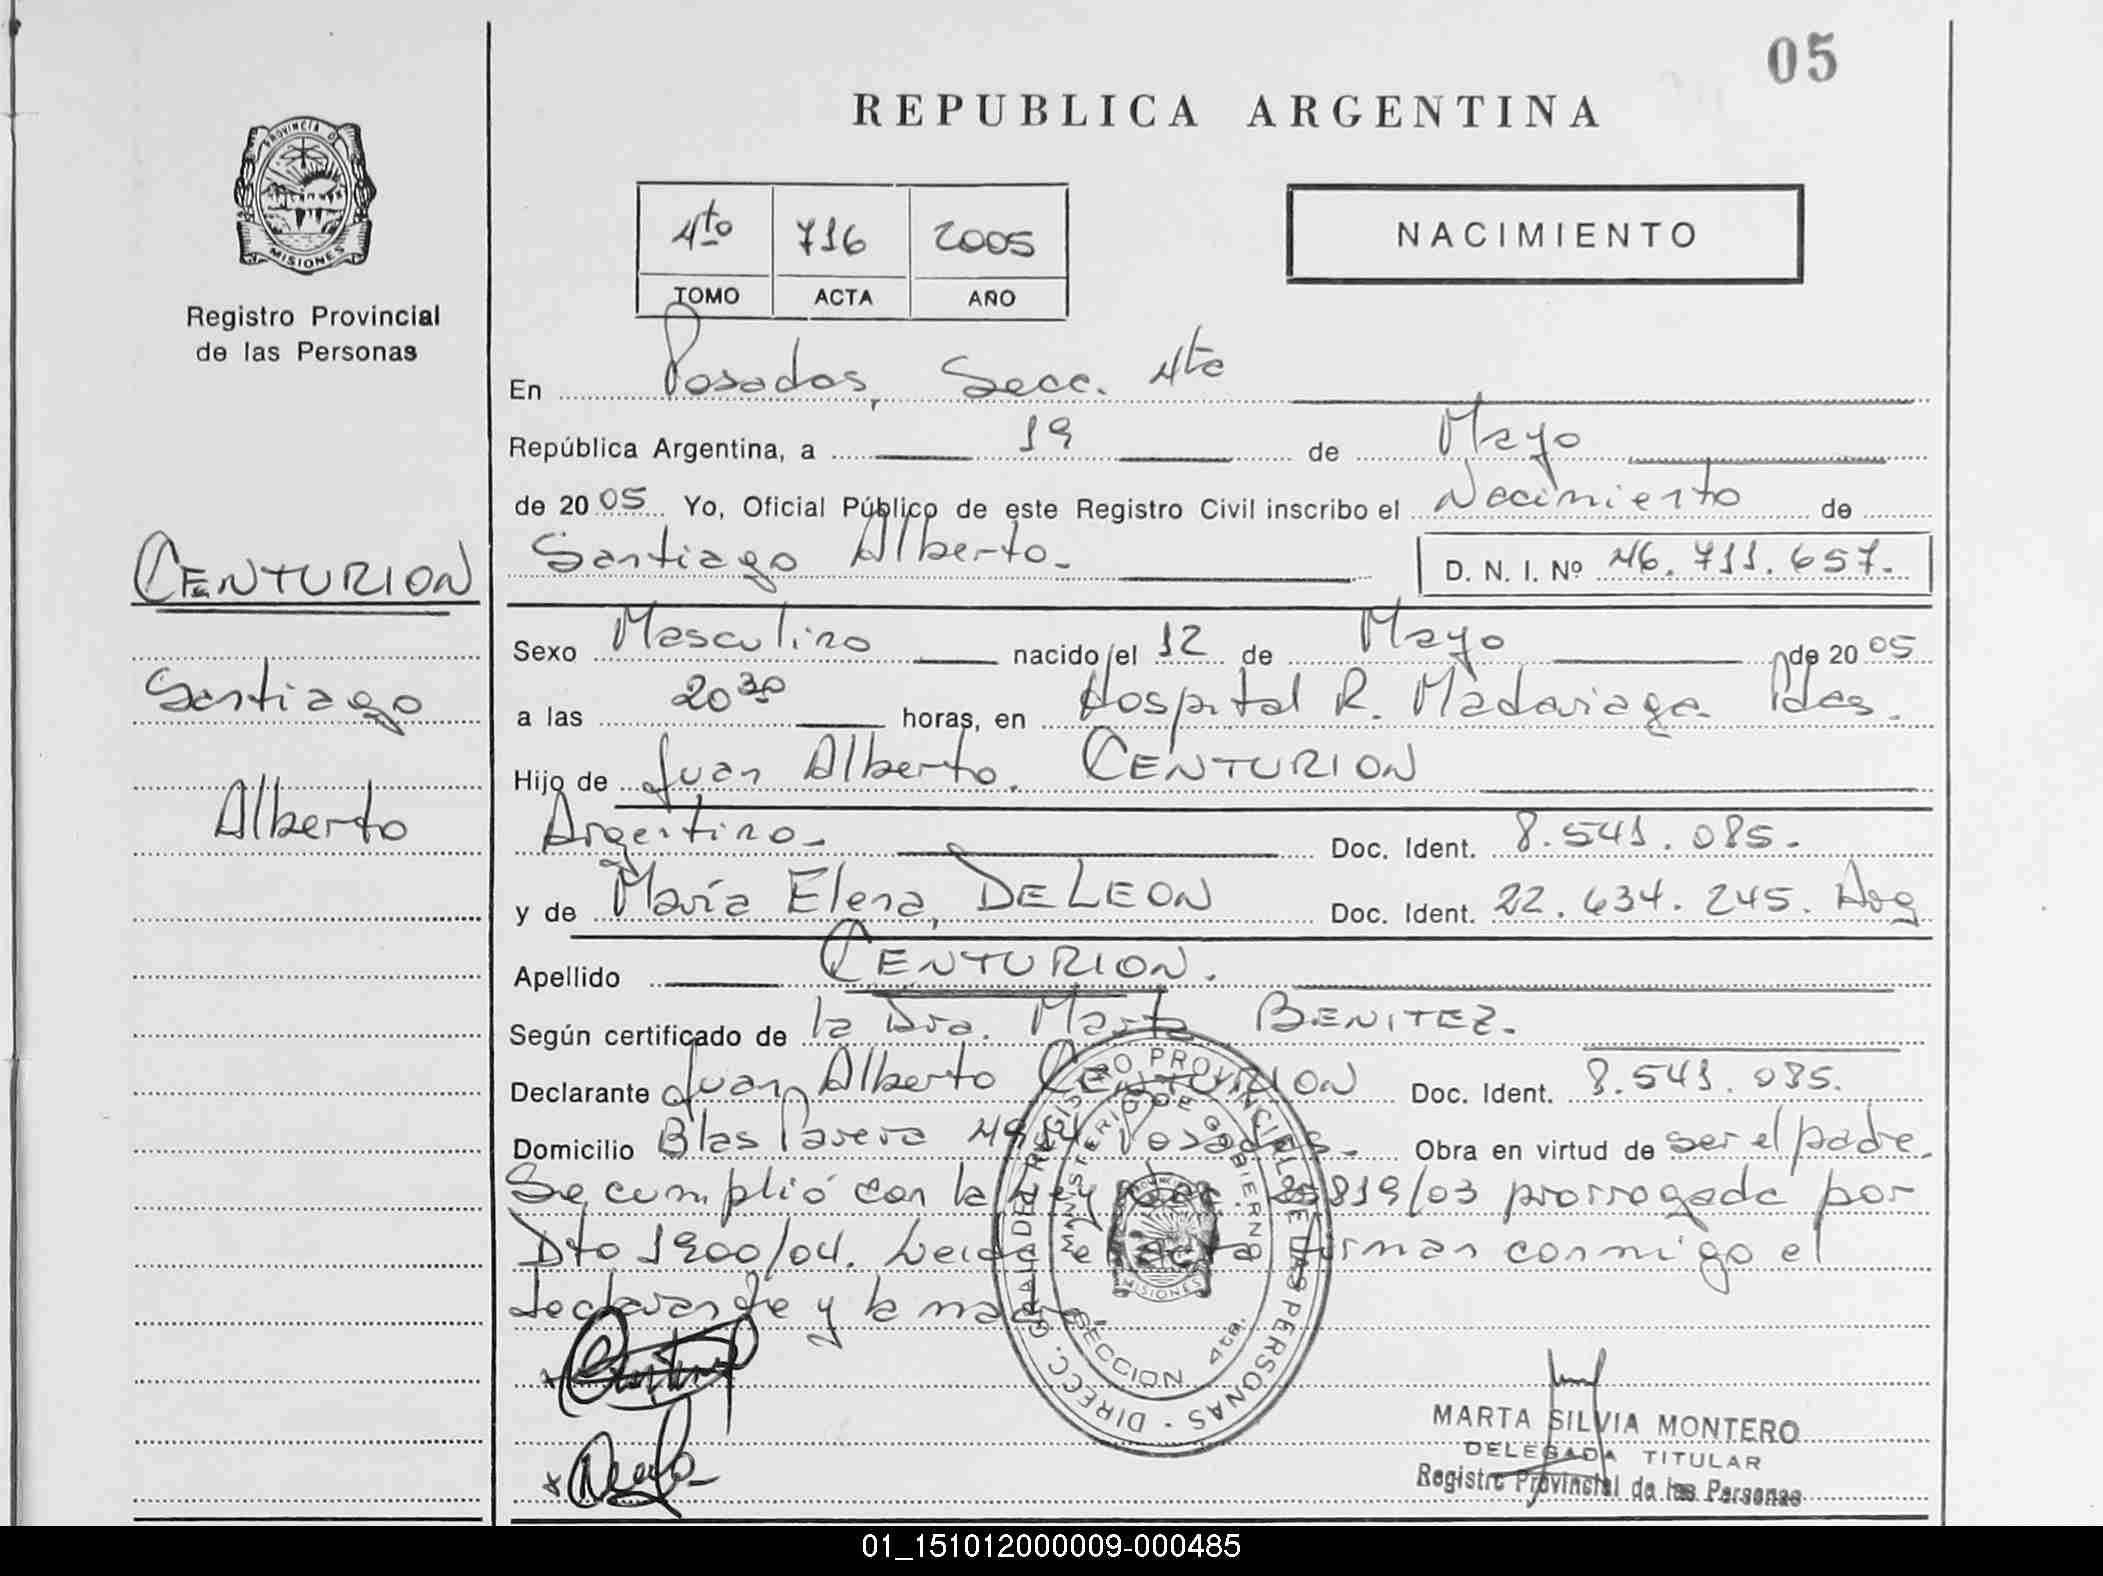 05
REPUBLICA ARGENTINA
PROVINCIA DE
MISIONES
Registro Provincial
de las Personas
4to 716 2005
TOMO ACTA AÑO
NACIMIENTO
En Posadas, Secc. 4ta
República Argentina, a 19 de Mayo
de 2005 Yo, Oficial Público de este Registro Civil inscribo el Nacimiento de
Santiago Alberto.- D. N. I. Nº 46.711.657.-
CENTURION
Santiago
Alberto
Sexo Masculino nacido el 12 de Mayo de 2005
a las 20 30 horas, en Hospital R. Madariaga Pdas.
Hijo de Juan Alberto. CENTURION
Argentino.- Doc. Ident. 8.541.085.-
y de María Elena, DE LEON Doc. Ident. 22.634.245. Arg
Apellido CENTURION.
Según certificado de la Dra. Marta BENITEZ.
Declarante Juan Alberto CENTURION Doc. Ident. 8.541.085.
Domicilio Blas Parera Posadas.- Obra en virtud de ser el padre.
Se cumplió con la Ley 25819/03 prorrogada por
Dto 1900/04. Leida el acta firman conmigo el
declarante y la madre.
DIRECC. GRAL. DEL REGISTRO PROVINCIAL DE LAS PERSONAS
MINISTERIO DE GOBIERNO
MISIONES
SECCION 4ta.
MARTA SILVIA MONTERO
DELEGADA TITULAR
Registro Provincial de las Personas
01_151012000009-000485